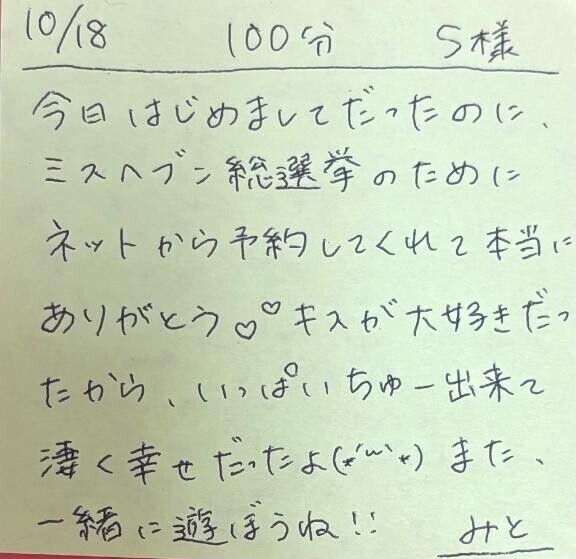 10/18 100分 S様
今日はじめましてだったのに、
ミスヘブン総選挙のために
ネットから予約してくれて本当に
ありがとう♡♡キスが大好きだっ
たから、いっぱいちゅー出来て
凄く幸せだったよ(*´ω`*)また、
一緒に遊ぼうね!!  みと